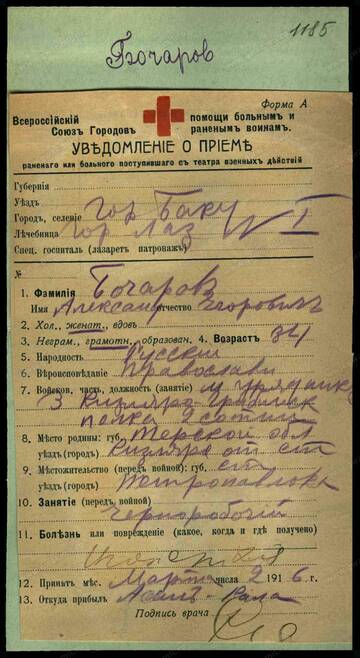 1185
Бочаров
Форма А
Всероссійскій помощи больнымъ и
Союзъ Городовъ раненымъ воинамъ.
УВѢДОМЛЕНІЕ О ПРІЕМѢ
раненаго или больного поступившаго съ театра военныхъ дѣйствій
Губернія
Уѣздъ
Городъ, селеніе гор Баку
Лѣчебница гор Лаз № 1
Спец. госпиталь (лазаретъ патронажъ)
№
1. Фамилія Бочаровъ
Имя Александр Отчество Егоровичъ
2. Хол., женат., вдовъ
3. Неграм., грамотн., образован. 4. Возрастъ 34
5. Народность Русскій
6. Вѣроисповѣданіе Православн
7. Войсков. часть, должность (занятіе) м урядник
3 Кизляро Гребенск
полка 2 сотни
8. Мѣсто родины: губ. Терской обл
уѣздъ (городъ) Кизляр от ст
9. Мѣстожительство (передъ войной): губ. ст
уѣздъ (городъ)
10. Занятіе (передъ войной)
Чернорабочій
11. Болѣзнь или поврежденіе (какое, когда и гдѣ получено)
12. Принятъ мѣс. Марта числа 2 1916 г.
13. Откуда прибылъ Кала
Подпись врача